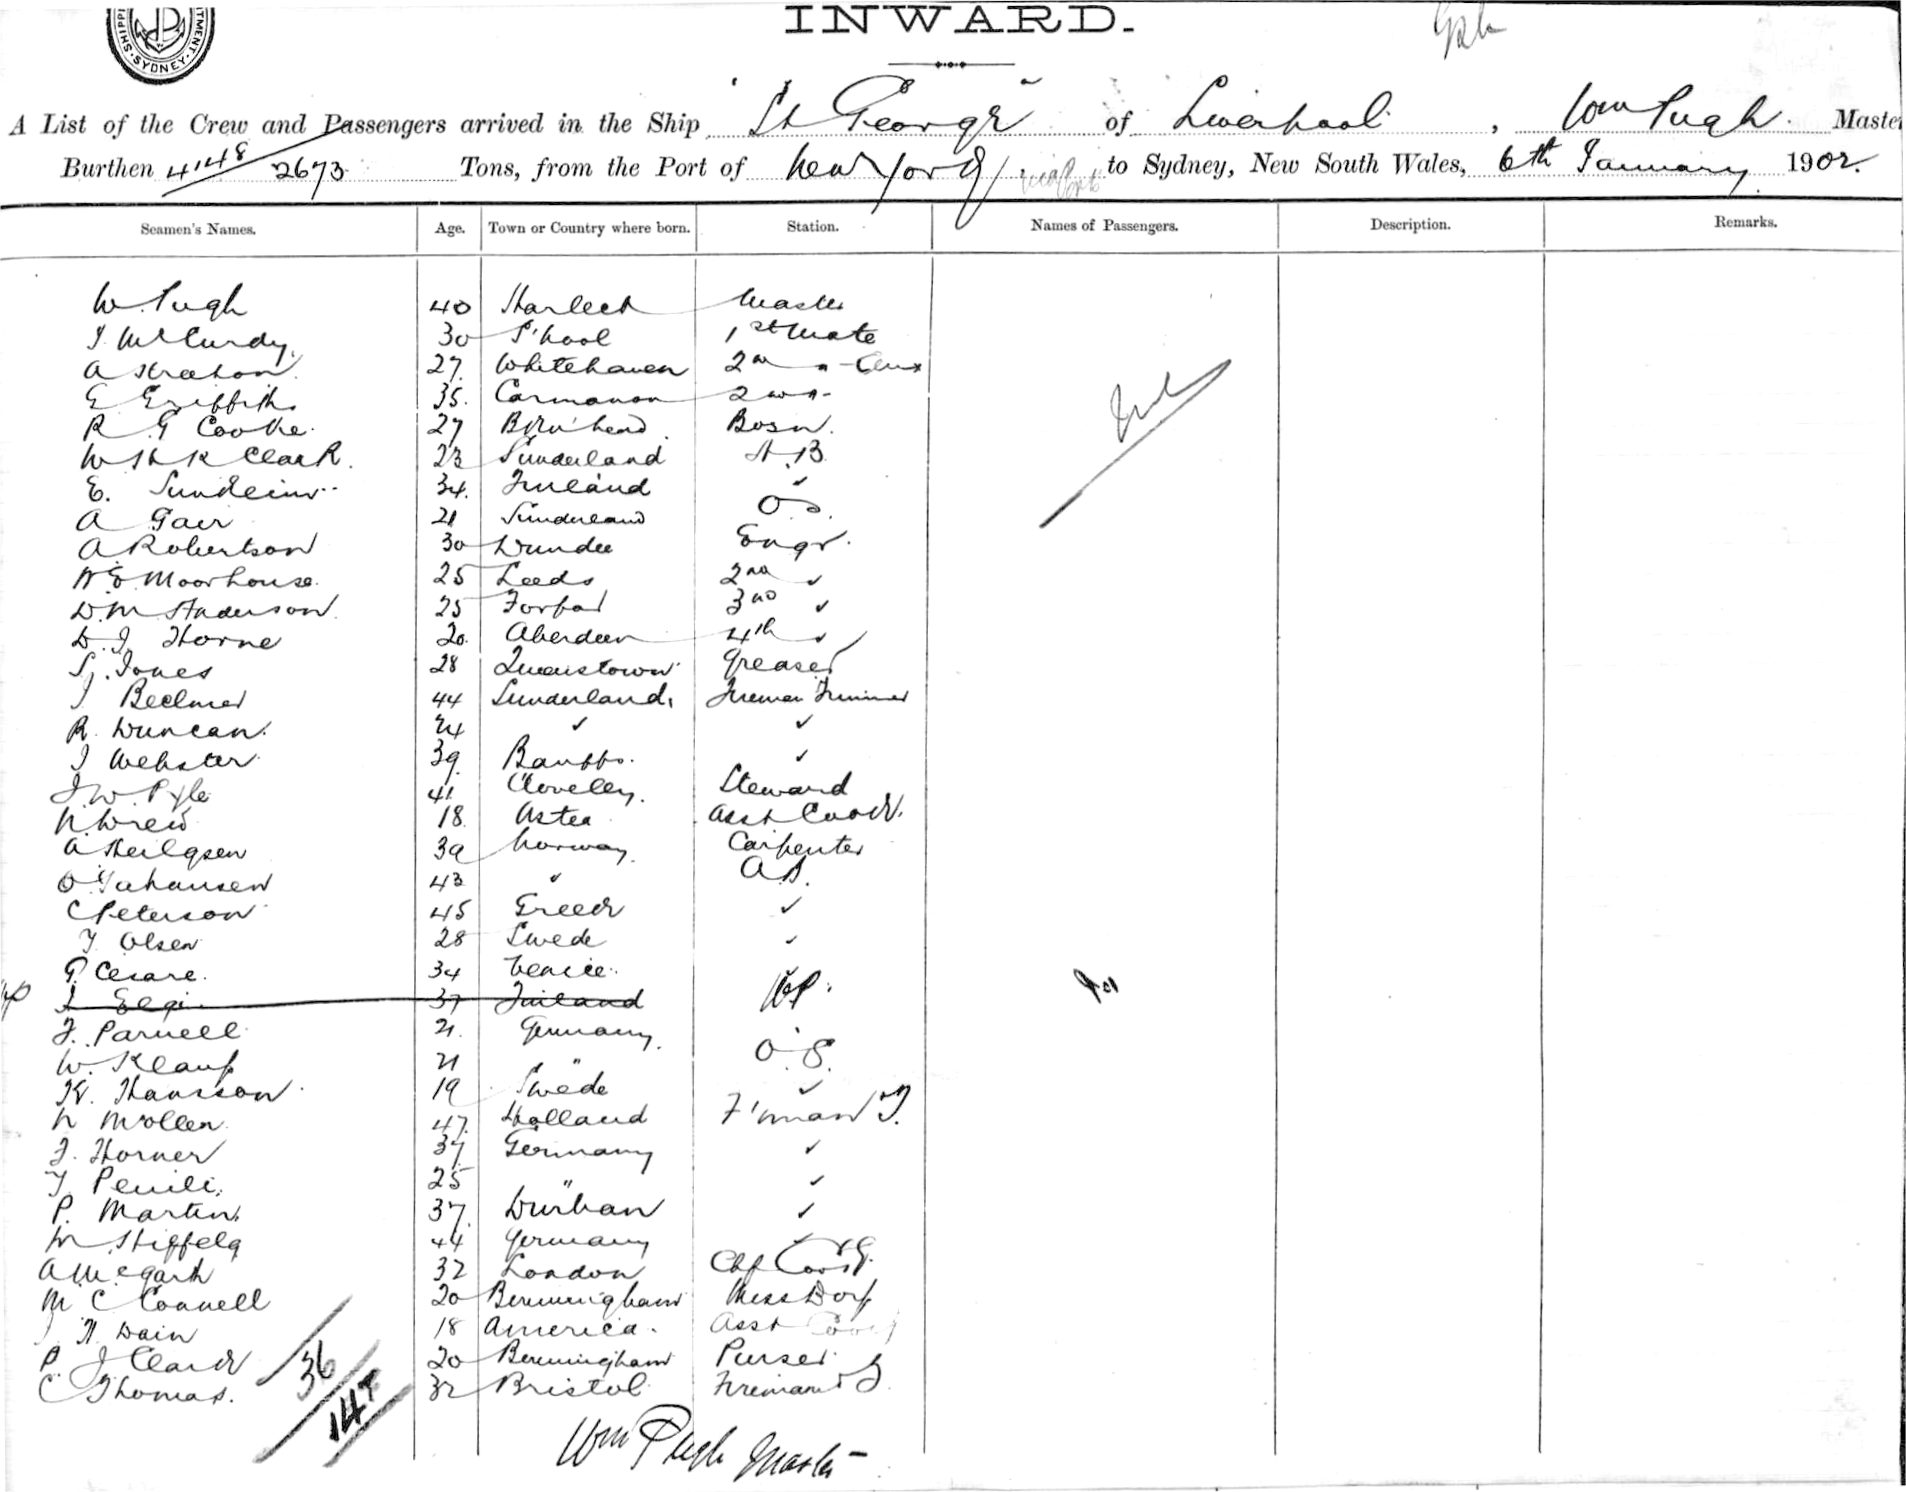 INWARD.
SYDNEY
A List of the Crew and Passengers arrived in the Ship "St George" of Liverpool, Wm Pugh. Master
Burthen 4148 2673 Tons, from the Port of New York, to Sydney, New South Wales, 6th January 1902.
Seamen's Names. Age. Town or Country where born. Station. Names of Passengers. Description. Remarks.
W. Pugh 40 Harlech Master
J McCurdy 30 L'pool 1st Mate
A Strachan 27 Whitehaven 2nd "
E Griffiths 35. Carnarvon 2nd "
R G Cooke 27 B'ken'head Bosn.
W H K Clark. 23 Sunderland A.B
E. 34. Finland ✓
A Gair 21 Sunderland O.S.
A Robertson 30 Dundee Engr.
W E Moorhouse. 25 Leeds 2nd ✓
D. M Anderson 25 Forfar 3rd ✓
D. J Horne 20. Aberdeen 4th ✓
S. Jones 28 Queenstown Greaser
J 44 Sunderland, Fireman Trimmer
R. Duncan. 24 ✓ ✓
J Webster 39 Banffs. ✓
J. W. Pyle 41 Cloveley. Steward
18 Asst Cook.
A 39 Norway. Carpenter
O 43 " A.B.
C Peterson 45 Greece ✓
T Olsen 28 Swede ✓
G. Cesare. 34 Venice
37 Finland
F. Parnell 21. Germany.
W. 21 " O S.
K. Hansson 19 Swede ✓
N Mollen 47. Holland F'man T.
F. Horner 37 Germany ✓
T 25 " ✓
P. Martin. 37. Durban ✓
44 Germany ✓
A McGarth 32 London Chf Cook
M C Connell 20 Birmingham Mess Boy
J H Dain 18 America. Asst Cook
P. J Clark 20 Birmingham Purser
C Thomas. 32 Bristol Fireman T
36
147
Wm Pugh Master